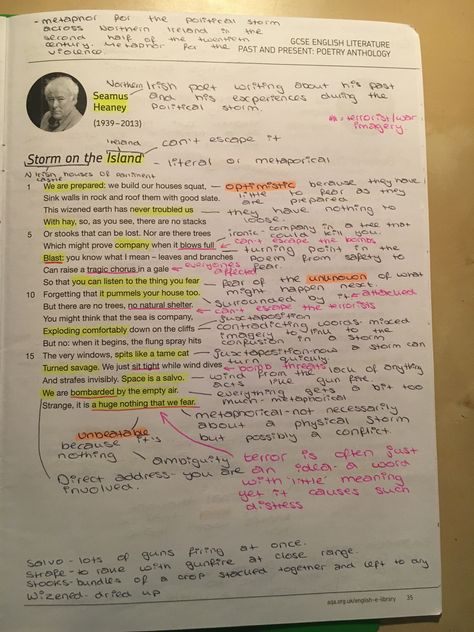 - metaphor for the political storm
across Northern Ireland in the
second half of the twentieth
century. Metaphor for the
violence.
GCSE ENGLISH LITERATURE
PAST AND PRESENT: POETRY ANTHOLOGY
Seamus
Heaney
(1939–2013)
Northern Irish poet writing about his past
and his experiences during the
political storm.
= terrorist/war
imagery
Ireland
can't escape it
Storm on the Island - literal or metaporical
N Irish houses of parliment
castle
1 We are prepared: we build our houses squat, - optimistic because they have
Sink walls in rock and roof them with good slate. little to fear as they
are prepared
This wizened earth has never troubled us - they have nothing to
With hay, so, as you see, there are no stacks loose.
5 Or stooks that can be lost. Nor are there trees ironic - company in a tree that
could kill you.
Which might prove company when it blows full can't escape the bombs
Blast: you know what I mean – leaves and branches turning point in the
poem from safety to
Can raise a tragic chorus in a gale everyones affected fear.
So that you can listen to the thing you fear - fear of the unknown of what
might happen next.
10 Forgetting that it pummels your house too. surrounded by it. attacked
But there are no trees, no natural shelter. can't escape the terrorists
You might think that the sea is company, juxtaposition
Exploding comfortably down on the cliffs - contradicting words. mixed
imagery to link to the
But no: when it begins, the flung spray hits confusion in a storm
15 The very windows, spits like a tame cat - juxtaposition - now a storm can
turn quickly
Turned savage. We just sit tight while wind dives bomb threats lack of anything
And strafes invisibly. Space is a salvo. wind from the range
acts like gun fire.
We are bombarded by the empty air. - everything gets a bit too
much - metaphorical
Strange, it is a huge nothing that we fear.
metaphorical - not necessarily
about a physical storm
but possibly a conflict.
unbeatable
because it's
nothing
ambiguity
Direct address - you are
involved.
terror is often just
an idea - a word
with 'little' meaning
yet it causes such
distress
Salvo - lots of guns firing at once.
Strafe - to rave with gunfire at close range.
Stooks - bundles of a crop stacked together and left to dry
Wizened - dried up
aqa.org.uk/english-e-library 35